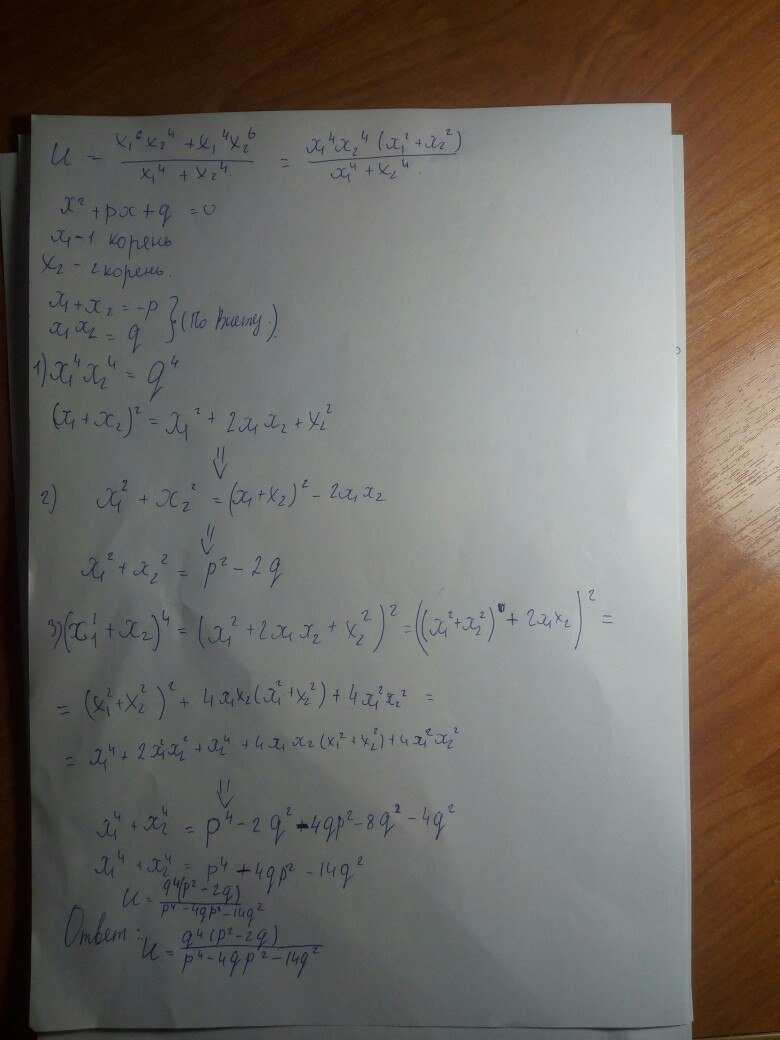 U = (x₁⁶x₂⁴ + x₁⁴x₂⁶)/(x₁⁴ + x₂⁴) = (x₁⁴x₂⁴(x₁² + x₂²))/(x₁⁴ + x₂⁴)
x² + px + q = 0
x₁ - 1 корень
x₂ - 2 корень.
x₁ + x₂ = -p
x₁x₂ = q } (По Виету.)
1) x₁⁴x₂⁴ = q⁴
(x₁ + x₂)² = x₁² + 2x₁x₂ + x₂²
⇓
2) x₁² + x₂² = (x₁ + x₂)² - 2x₁x₂
⇓
x₁² + x₂² = p² - 2q
3) (x₁ + x₂)⁴ = (x₁² + 2x₁x₂ + x₂²)² = ((x₁² + x₂²) + 2x₁x₂)² =
= (x₁² + x₂²)² + 4x₁x₂(x₁² + x₂²) + 4x₁²x₂² =
= x₁⁴ + 2x₁²x₂² + x₂⁴ + 4x₁x₂(x₁² + x₂²) + 4x₁²x₂²
⇓
x₁⁴ + x₂⁴ = p⁴ - 2q² - 4qp² - 8q² - 4q²
x₁⁴ + x₂⁴ = p⁴ - 4qp² - 14q²
U = (q⁴(p² - 2q))/(p⁴ - 4qp² - 14q²)
Ответ: U = (q⁴(p² - 2q))/(p⁴ - 4qp² - 14q²)